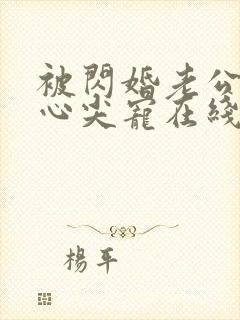 被閃婚老公
心尖寵在綫
楊平